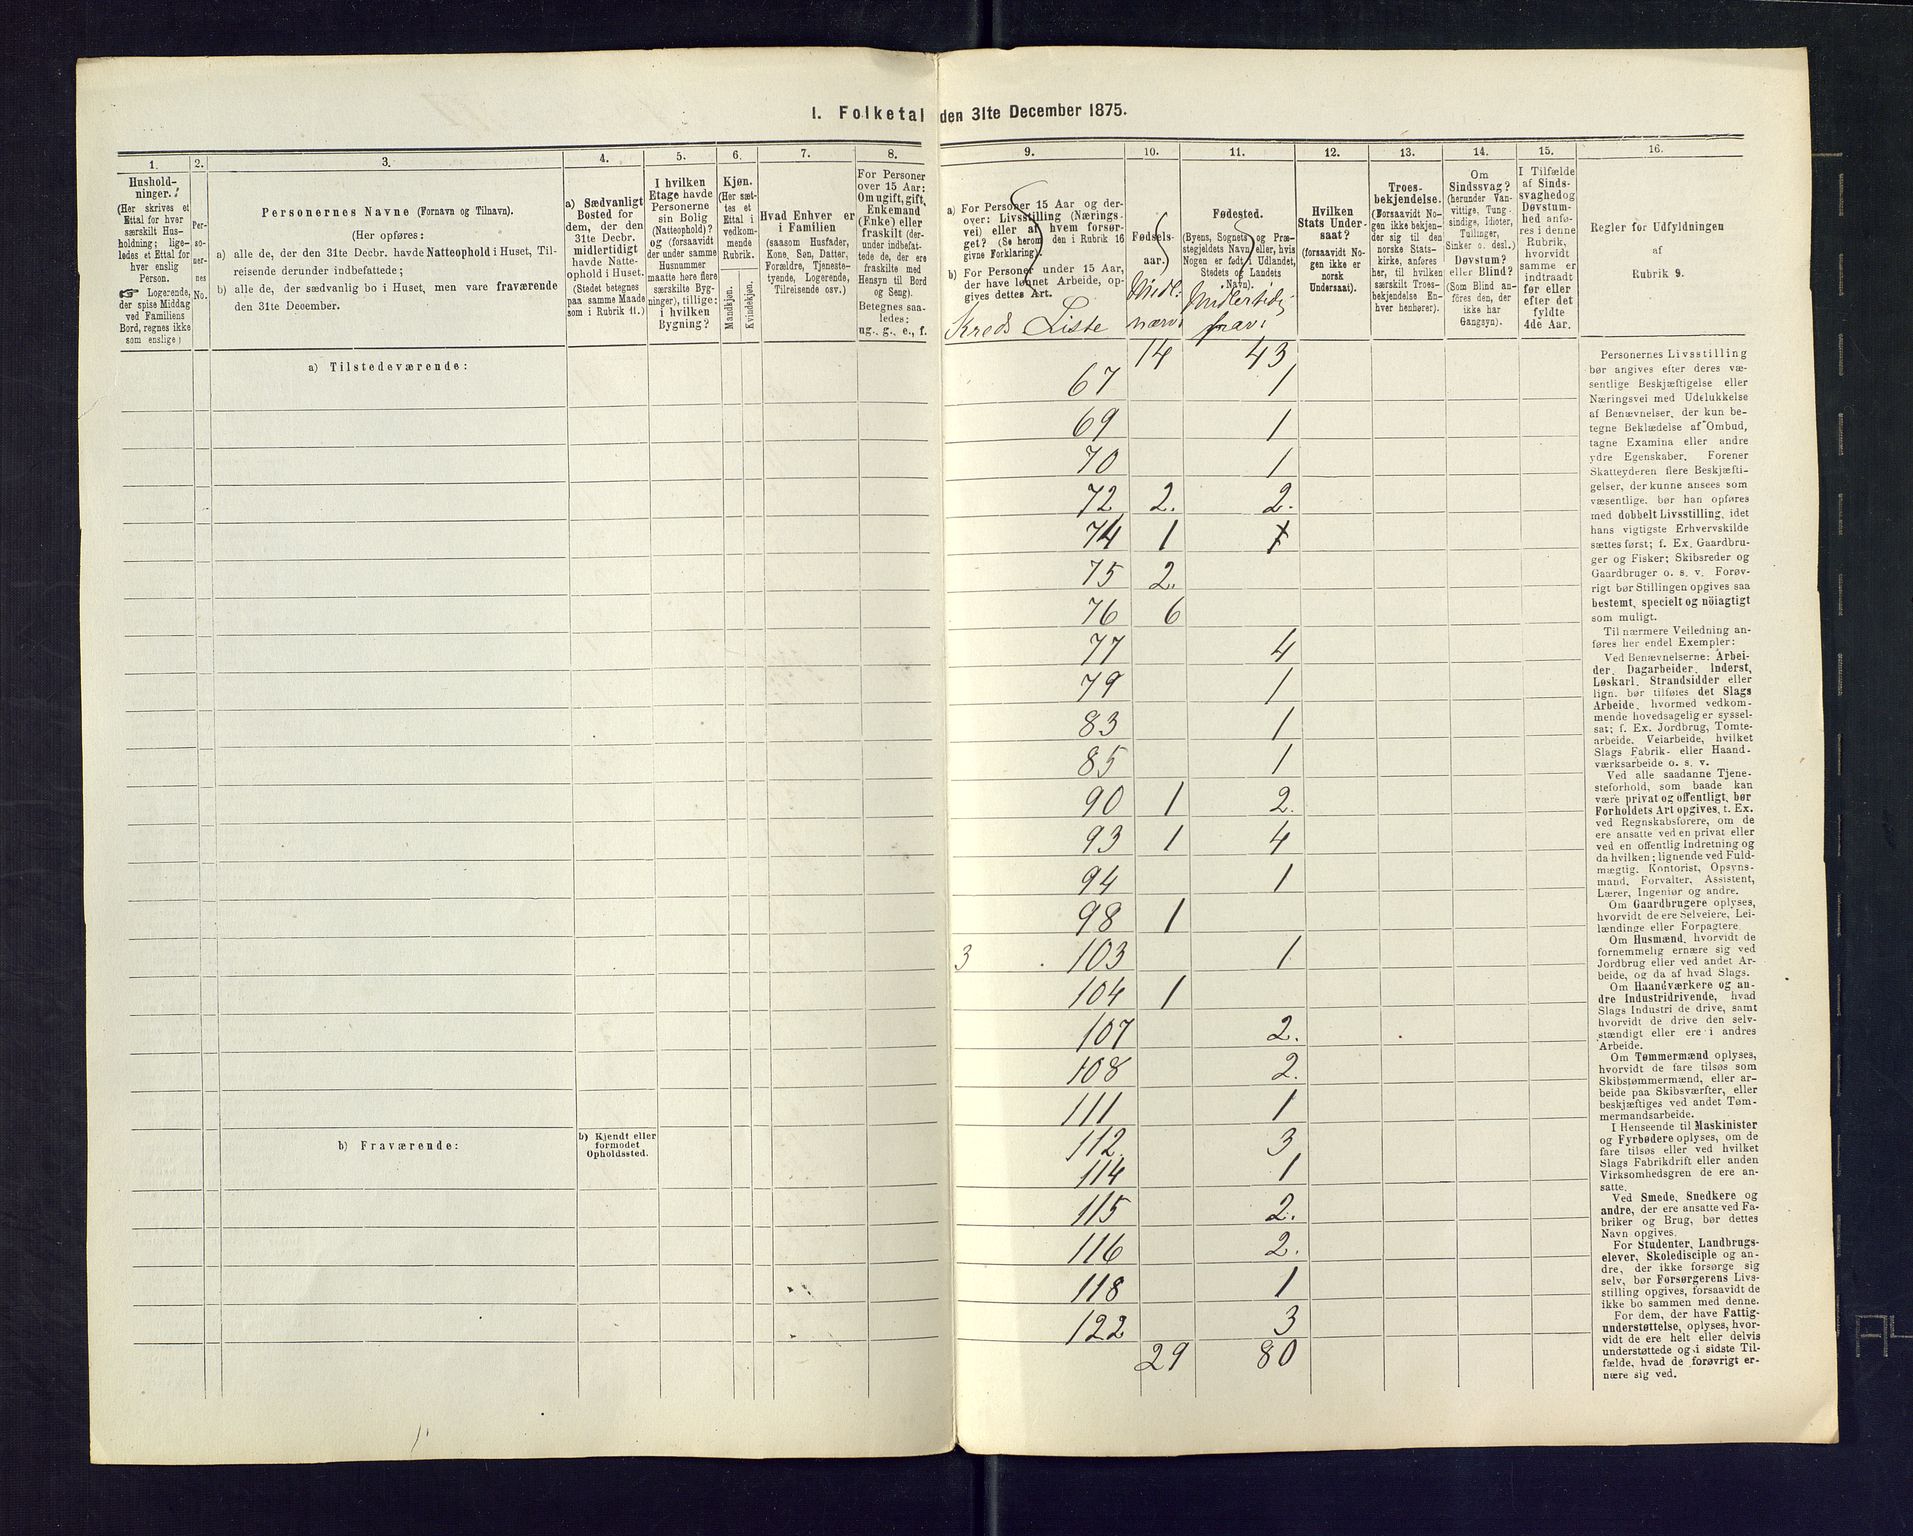 I. Folketal den 31te December 1875.
1. 2. 3. 4. 5. 6. 7. 8. 9. 10. 11. 12. 13. 14. 15. 16.
Hushold-
ninger.
(Her skrives et
Ettal for hver
særskilt Hus-
holdning; lige-
ledes et Ettal for
hver enslig
Person.
☞ Logerende,
der spise Middag
ved Familiens
Bord, regnes ikke
som enslige)
Per-
so-
ner-
nes
No.
Personernes Navne (Fornavn og Tilnavn).
(Her opføres:
a) alle de, der den 31te Decbr. havde Natteophold i Huset, Til-
reisende derunder indbefattede;
b) alle de, der sædvanlig bo i Huset, men vare fraværende
den 31te December.
a) Sædvanligt
Bosted for
dem, der den
31te Decbr.
midlertidigt
havde Natte-
ophold i Huset.
(Stedet betegnes
paa samme Maade
som i Rubrik 11.)
I hvilken
Etage havde
Personerne
sin Bolig
(Natteophold)?
og (forsaavidt
der under samme
Husnummer
maatte høre flere
særskilte Byg-
ninger), tillige:
i hvilken
Bygning?
Kjøn.
(Her sæt-
tes et
Ettal i
vedkom-
mende
Rubrik.
Mandkjøn.
Kvindekjøn.
Hvad Enhver er
i Familien
(saasom Husfader,
Kone, Søn, Datter,
Forældre, Tjeneste-
tyende, Logerende,
Tilreisende osv.)
For Personer
over 15 Aar:
Om ugift, gift,
Enkemand
(Enke) eller
fraskilt (der-
under indbefat-
tede de, der ere
fraskilte med
Hensyn til Bord
og Seng).
Betegnes saa-
ledes:
ug., g., e., f.
a) For Personer 15 Aar og der-
over: Livsstilling (Nærings-
vei) eller af hvem forsør-
get? (Se herom den i Rubrik 16
givne Forklaring).
b) For Personer under 15 Aar,
der have lønnet Arbeide, op-
gives dettes Art.
Kreds Liste
Fødsels-
aar.
Midl.
nærv.
Fødested.
(Byens, Sognets og Præ-
stegjeldets Navn, eller, hvis
Nogen er født i Udlandet,
Stedets og Landets
Navn).
Midlertidig
frav.
Hvilken
Stats Under-
saat?
(forsaavidt No-
gen ikke er
norsk
Undersaat).
Troes-
bekjendelse.
(Forsaavidt No-
gen ikke bekjen-
der sig til den
norske Stats-
kirke, anføres
her, til hvilken
særskilt Troes-
bekjendelse En-
hver henhører).
Om
Sindssvag?
(herunder Van-
vittige, Tung-
sindige, Idioter,
Tullinger,
Sinker o. desl.)
Døvstum?
eller Blind?
(Som Blind an-
føres den, der
ikke har
Gangsyn).
I Tilfælde
af Sinds-
svaghed og
Døvstum-
hed anfø-
res i denne
Rubrik,
hvorvidt
samme er
indtraadt
før eller
efter det
fyldte
4de Aar.
Regler for Udfyldningen
af
Rubrik 9.
a) Tilstedeværende:
14 43
67 1
69 1
70 1
72 2. 2.
74 1
75 2.
76 6
77 4
79 1
83 1
85 1
90 1 2.
93 1 4
94 1
98 1
3 103 1
104 1
107 2.
108 2.
111 1
b) Fraværende:
b) Kjendt eller
formodet
Opholdssted.
112. 3
114 1
115 2.
116 2.
118 1
122 3
29 80
Personernes Livsstilling
bør angives efter deres væ-
sentlige Beskjæftigelse eller
Næringsvei med Udelukkelse
af Benævnelser, der kun be-
tegne Beklædelse af Ombud,
tagne Examina eller andre
ydre Egenskaber. Forener
Skatteyderen flere Beskjæfti-
gelser, der kunne ansees som
væsentlige, bør han opføres
med dobbelt Livsstilling, idet
hans vigtigste Erhvervskilde
sættes først; f. Ex. Gaardbru-
ger og Fisker; Skibsreder og
Gaardbruger o. s. v. Forøv-
rigt bør Stillingen opgives saa
bestemt, specielt og nöiagtigt
som muligt.
Til nærmere Veiledning an-
føres her endel Exempler:
Ved Benævnelserne: Arbei-
der, Dagarbeider, Inderst,
Løskarl, Strandsidder eller
lign. bør tilføies det Slags
Arbeide, hvormed vedkom-
mende hovedsagelig er syssel-
sat; f. Ex. Jordbrug, Tomte-
arbeide, Veiarbeide, hvilket
Slags Fabrik- eller Haand-
værksarbeide o. s. v.
Ved alle saadanne Tjene-
steforhold, som baade kan
være privat og offentligt, bør
Forholdets Art opgives, t. Ex.
ved Regnskabsførere, om de
ere ansatte ved en privat eller
ved en offentlig Indretning og
da hvilken; lignende ved Fuld-
mægtig, Kontorist, Opsyns-
mand, Forvalter, Assistent,
Lærer, Ingeniør og andre.
Om Gaardbrugere oplyses,
hvorvidt de ere Selveiere, Lei-
lændinge eller Forpagtere.
Om Husmænd, hvorvidt de
fornemmelig ernære sig ved
Jordbrug eller ved andet Ar-
beide, og da af hvad Slags.
Om Haandværkere og an-
dre Industridrivende, hvad
Slags Industri de drive, samt
hvorvidt de drive den selv-
stændigt eller ere i andres
Arbeide.
Om Tømmermænd oplyses,
hvorvidt de fare tilsøs som
Skibstømmermænd, eller ar-
beide paa Skibsværfter, eller
beskjæftiges ved andet Tøm-
mermandsarbeide.
I Henseende til Maskinister
og Fyrbødere oplyses, om de
fare tilsøs eller ved hvilket
Slags Fabrikdrift eller anden
Virksomhedsgren de ere an-
satte.
Ved Smede, Snedkere og
andre, der ere ansatte ved Fa-
briker og Brug, bør dettes
Navn opgives.
For Studenter, Landbrugs-
elever, Skoledisciple og an-
dre, der ikke forsørge sig
selv, bør Forsørgerens Livs-
stilling opgives, forsaavidt de
ikke bo sammen med denne.
For dem, der have Fattig-
understøttelse, oplyses, hvor-
vidt de ere helt eller delvis
understøttede og i sidste Til-
fælde, hvad de forøvrigt er-
nære sig ved.